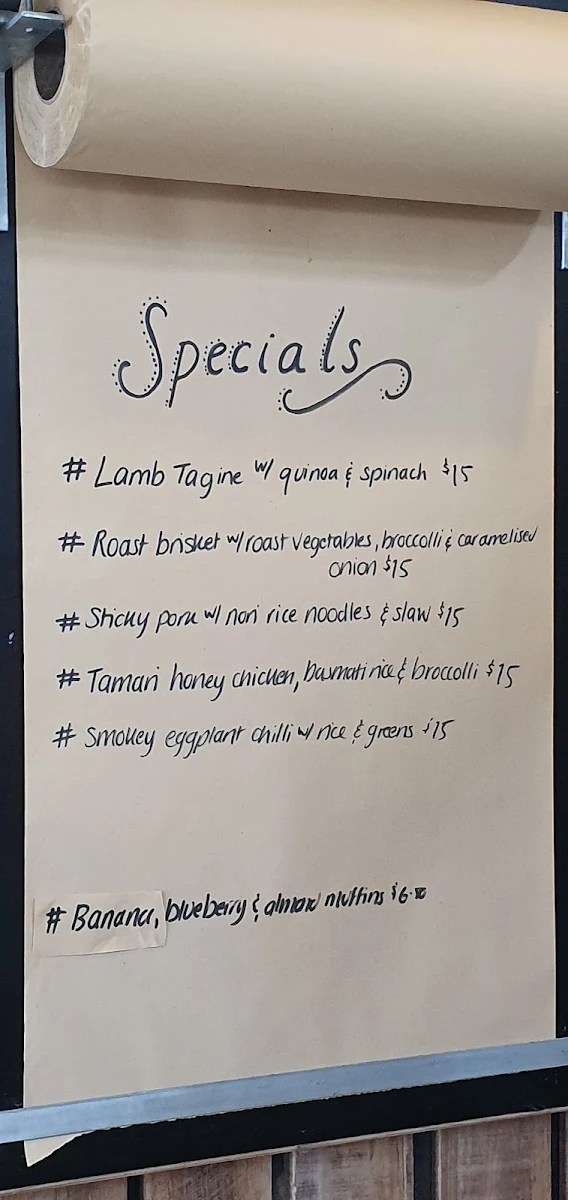 Specials
# Lamb Tagine w/ quinoa & spinach $15
# Roast brisket w/ roast vegetables, broccolli & caramelised
onion $15
# Sticky pork w/ nori rice noodles & slaw $15
# Tamari honey chicken, basmati rice & broccolli $15
# Smokey eggplant chilli w/ rice & greens $15
# Banana, blueberry & almond muffins